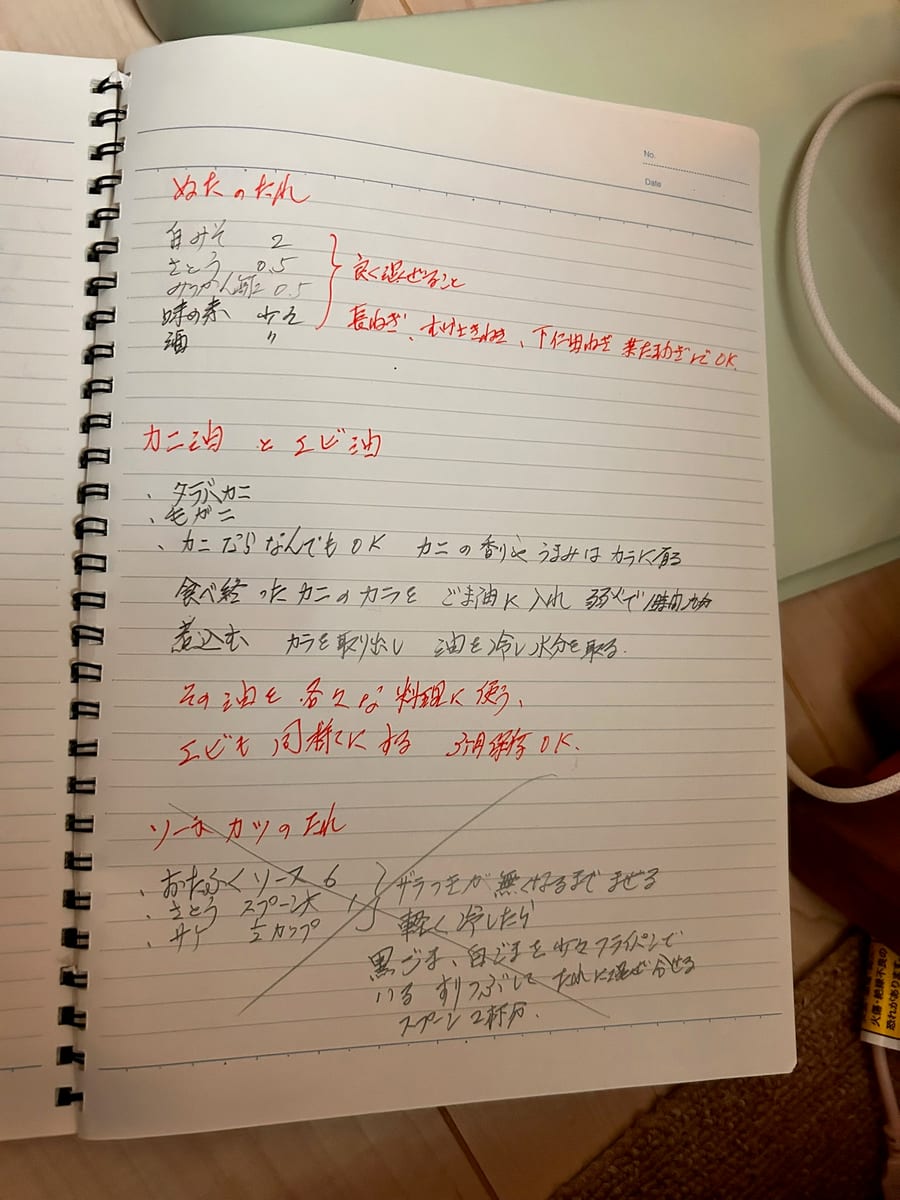 No.
Date
ぬたのたれ
白みそ 2
さとう 0.5
みつかん酢 0.5
味の素 少々
酒 〃
良く混ぜること
長ねぎ、わけぎ、下仁田ねぎ でOK.
カニ油 と エビ油
、タラバカニ
、毛ガニ
、カニならなんでもOK カニの香りや うまみは カラに有る
食べ終ったカニのカラを ごま油に入れ 弱火で 1時間
煮込む カラを取り出し 油を冷し水分を取る.
その油を 各々な料理に使う、
エビも 同様にする 3ヶ月保存 OK.
ソースカツのたれ
、おたふくソース 6
、さとう スプーン大 1.5
、サケ ½カップ
ザラつきが 無くなるまで まぜる
軽く冷したら
黒ごま、白ごまを少々フライパンで
いる すりつぶして たれに混ぜ合せる
スプーン 2杯分.
火傷・絶縁不良の
恐れがあります